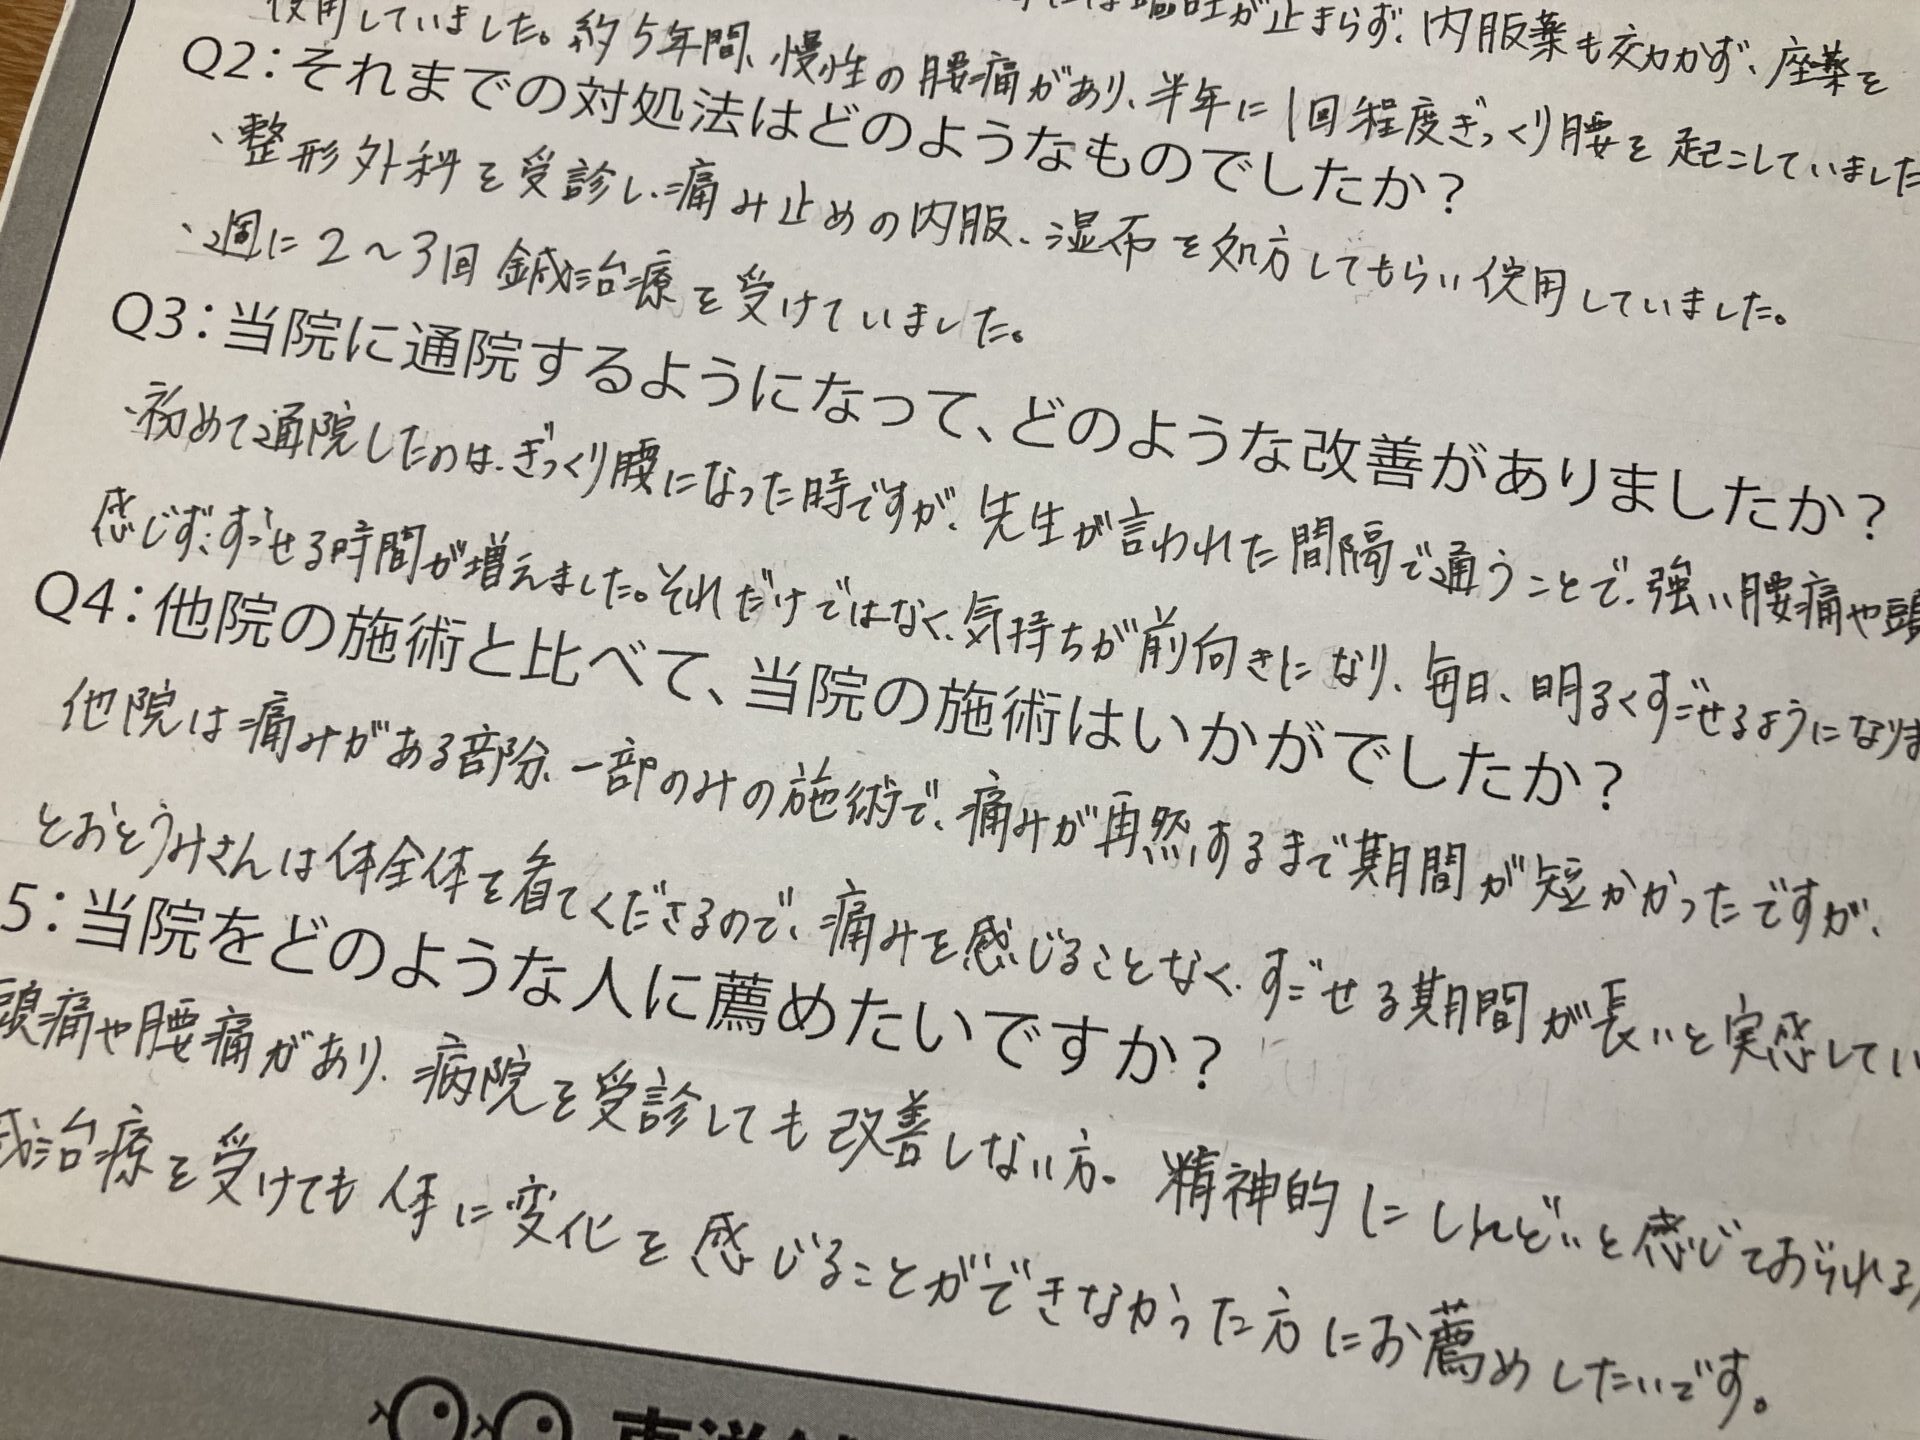 嘔吐が止まらず、内服薬も効かず、座薬を
使用していました。約5年間、慢性の腰痛があり、半年に1回程度ぎっくり腰を起こしていました
Q2：それまでの対処法はどのようなものでしたか？
、整形外科を受診し、痛み止めの内服、湿布を処方してもらい使用していました。
、週に2〜3回鍼治療を受けていました。
Q3：当院に通院するようになって、どのような改善がありましたか？
、初めて通院したのは、ぎっくり腰になった時ですが、先生が言われた間隔で通うことで、強い腰痛や頭
感じず、すごせる時間が増えました。それだけではなく、気持ちが前向きになり、毎日、明るくすごせるようになりま
Q4：他院の施術と比べて、当院の施術はいかがでしたか？
他院は痛みがある部分、一部のみの施術で、痛みが再然するまで期間が短かかったですが、
とおとうみさんは体全体を看てくださるので、痛みを感じることなく、すごせる期間が長いと実感してい
5：当院をどのような人に薦めたいですか？
頭痛や腰痛があり、病院を受診しても改善しない方。精神的にしんどいと感じておられる
治療を受けても体に変化を感じることができなかった方にお薦めしたいです。
東洋